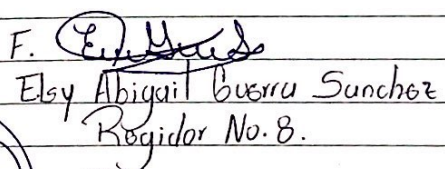 F.
Elsy Abigail Guerra Sanchez
Regidor No. 8.